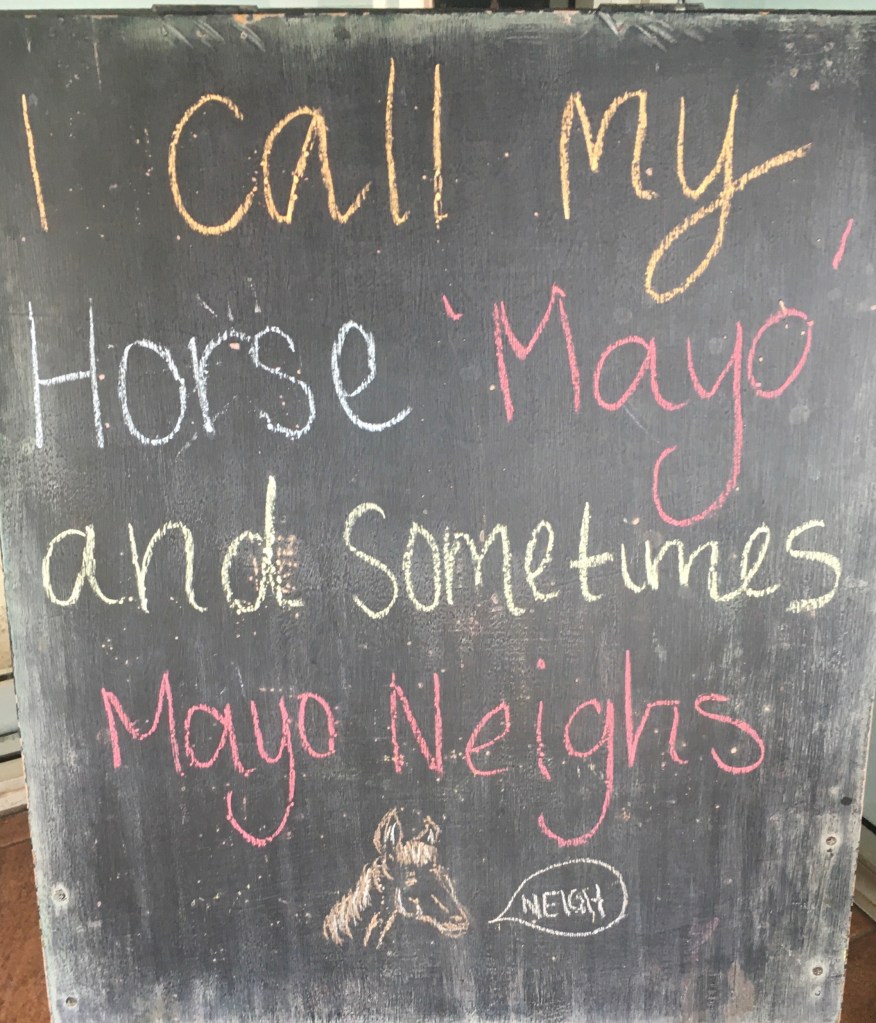 I call my
Horse 'Mayo'
and Sometimes
Mayo Neighs
NEIGH